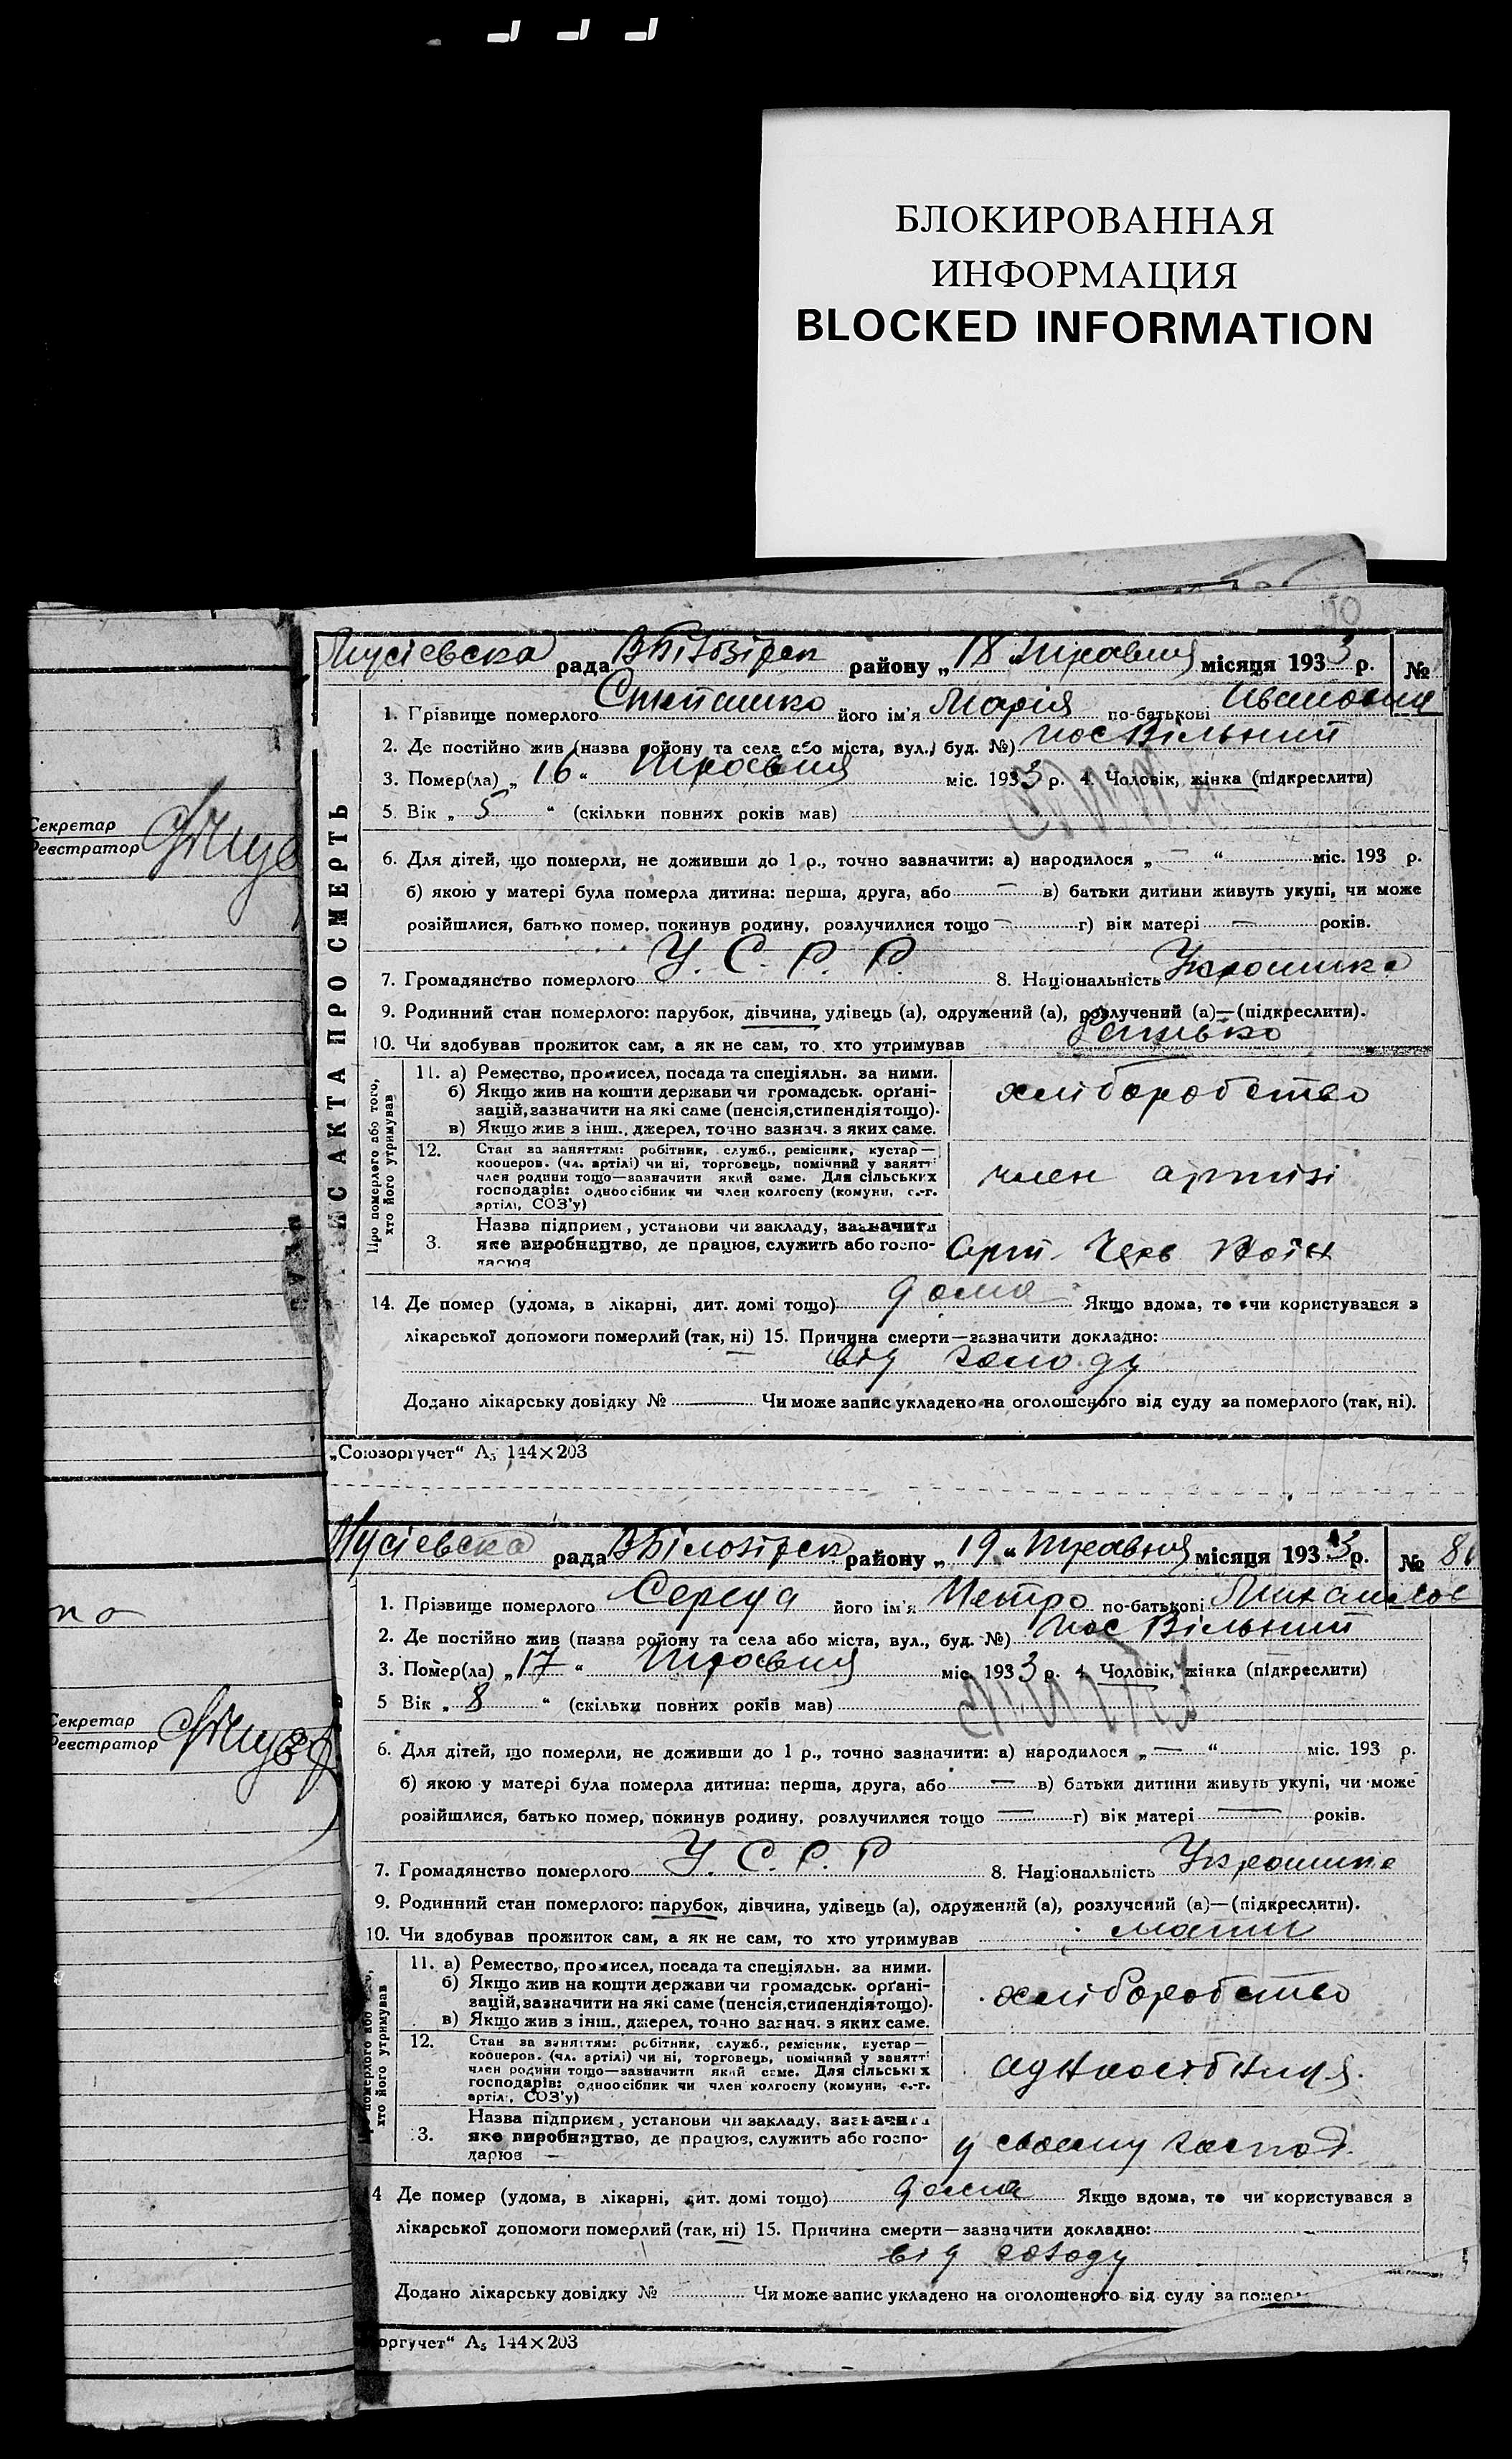 БЛОКИРОВАННАЯ
ИНФОРМАЦИЯ
BLOCKED INFORMATION
50
Секретар
Реєстратор
Секретар
Реєстратор
ПИС АКТА ПРО СМЕРТЬ
Мусієвська рада В Білозірськ району „ 18 “ травня місяця 1933 р. №
1. Прізвище померлого Степашко його ім'я Марія по-батькові Івановна
2. Де постійно жив (назва району та села або міста, вул., буд. №) пос Вільний
3. Помер(ла) „ 16 “ травня міс. 1933 р. 4. Чоловік, жінка (підкреслити)
5. Вік „ 5 “ (скільки повних років мав)
6. Для дітей, що померли, не доживши до 1 р., точно зазначити: а) народилося „ — “ міс. 193 р.
б) якою у матері була померла дитина: перша, друга, або — в) батьки дитини живуть укупі, чи може
розійшлися, батько помер, покинув родину, розлучилися тощо — г) вік матері — років.
7. Громадянство померлого У. С. Р. Р. 8. Національність Украинка
9. Родинний стан померлого: парубок, дівчина, удівець (а), одружений (а), розлучений (а)—(підкреслити).
10. Чи здобував прожиток сам, а як не сам, то хто утримував батько
Про померлого або того, хто його утримував
11. а) Ремество, промисел, посада та спеціяльн. за ними.
б) Якщо жив на кошти держави чи громадськ. орґані-
зацій, зазначити на які саме (пенсія, стипендія тощо).
в) Якщо жив з інш. джерел, точно зазнач. з яких саме.
хліборобство
12. Стан за заняттям: робітник, служб., ремісник, кустар—
кооперов. (чл. артілі) чи ні, торговець, помічний у занятті
член родини тощо—зазначити який саме. Для сільських
господарів: одноосібник чи член колгоспу (комуни, с.-г.
артілі, СОЗ'у)
член артілі
3. Назва підприєм., установи чи закладу, зазначити
яке виробництво, де працює, служить або госпо-
дарює
Арт. Черв Воїн
14. Де помер (удома, в лікарні, дит. домі тощо) дома Якщо вдома, то чи користувався з
лікарської допомоги померлий (так, ні) 15. Причина смерти—зазначити докладно:
від голоду
Додано лікарську довідку № — Чи може запис укладено на оголошеного від суду за померлого (так, ні).
„Союзоргучет“ А5 144×203
Мусієвська рада В Білозірськ району „ 19 “ травня місяця 1933 р. №
1. Прізвище померлого Середа його ім'я Петро по-батькові Михайлов
2. Де постійно жив (назва району та села або міста, вул., буд. №) пос Вільний
3. Помер(ла) „ 17 “ травня міс. 1933 р. 4. Чоловік, жінка (підкреслити)
5 Вік „ 8 “ (скільки повних років мав)
6. Для дітей, що померли, не доживши до 1 р., точно зазначити: а) народилося „ — “ міс. 193 р.
б) якою у матері була померла дитина: перша, друга, або — в) батьки дитини живуть укупі, чи може
розійшлися, батько помер, покинув родину, розлучилися тощо — г) вік матері — років.
7. Громадянство померлого У. С. Р. Р 8. Національність
9. Родинний стан померлого: парубок, дівчина, удівець (а), одружений (а), розлучений (а)—(підкреслити).
10. Чи здобував прожиток сам, а як не сам, то хто утримував мати
померлого або хто його утримував
11. а) Ремество, промисел, посада та спеціяльн. за ними.
б) Якщо жив на кошти держави чи громадськ. орґані-
зацій, зазначити на які саме (пенсія, стипендія тощо).
в) Якщо жив з інш. джерел, точно зазнач. з яких саме.
хліборобство
12. Стан за заняттям: робітник, служб., ремісник, кустар—
кооперов. (чл. артілі) чи ні, торговець, помічний у занятті
член родини тощо—зазначити який саме. Для сільських
господарів: одноосібник чи член колгоспу (комуни, с.-г.
артілі, СОЗ'у)
адноосібниця
3. Назва підприєм., установи чи закладу, зазначити
яке виробництво, де працює, служить або госпо-
дарює —
у своему господ.
4 Де помер (удома, в лікарні, дит. домі тощо) дома Якщо вдома, то чи користувався з
лікарської допомоги померлий (так, ні) 15. Причина смерти—зазначити докладно:
від голоду
Додано лікарську довідку № Чи може запис укладено на оголошеного від суду за померл
оргучет“ А5 144×203